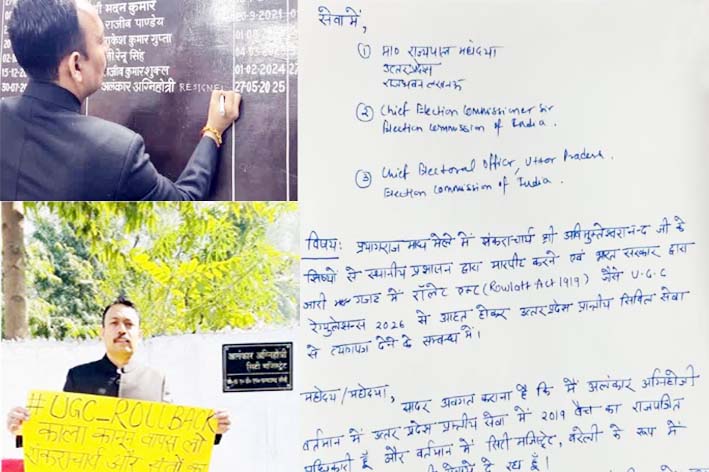 मदन कुमार
राजीव पाण्डेय
20-9-2021
राकेश कुमार गुप्ता
01-0
रेनू सिंह
04-0
15-12
राजीव कुमार शुक्ल
01-02-2024
30-07
अलंकार अग्निहोत्री RESIGNED
27-05-2025
अलंकार अग्निहोत्री
सिटी मजिस्ट्रेट
#UGC_ROLLBACK
काला कानून वापस लो
शंकराचार्य और संतों का
सेवा में,
① मा० राज्यपाल महोदया
उत्तर प्रदेश
राजभवन लखनऊ
② Chief Election Commissioner Sir
Election Commission of India.
③ Chief Electoral Officer, Uttar Pradesh,
Election Commission of India.
विषय: प्रयागराज माघ मेले में शंकराचार्य श्री अविमुक्तेश्वरानन्द जी के
शिष्यों से स्थानीय प्रशासन द्वारा मारपीट करने एवं भारत सरकार द्वारा
जारी गजट में रॉलेट एक्ट (Rowlatt Act 1919) जैसे U.G.C
रेगुलेसन्स 2026 से आहत होकर उत्तर प्रदेश प्रान्तीय सिविल सेवा
से त्यागपत्र देने के सम्बन्ध में।
महोदय/महोदया,
सादर अवगत कराना है कि मैं अलंकार अग्निहोत्री
वर्तमान में उत्तर प्रदेश प्रान्तीय सेवा में 2019 बैच का राजपत्रित
अधिकारी हूँ और वर्तमान में सिटी मजिस्ट्रेट, बरेली के रूप में
दे रहा हूँ।